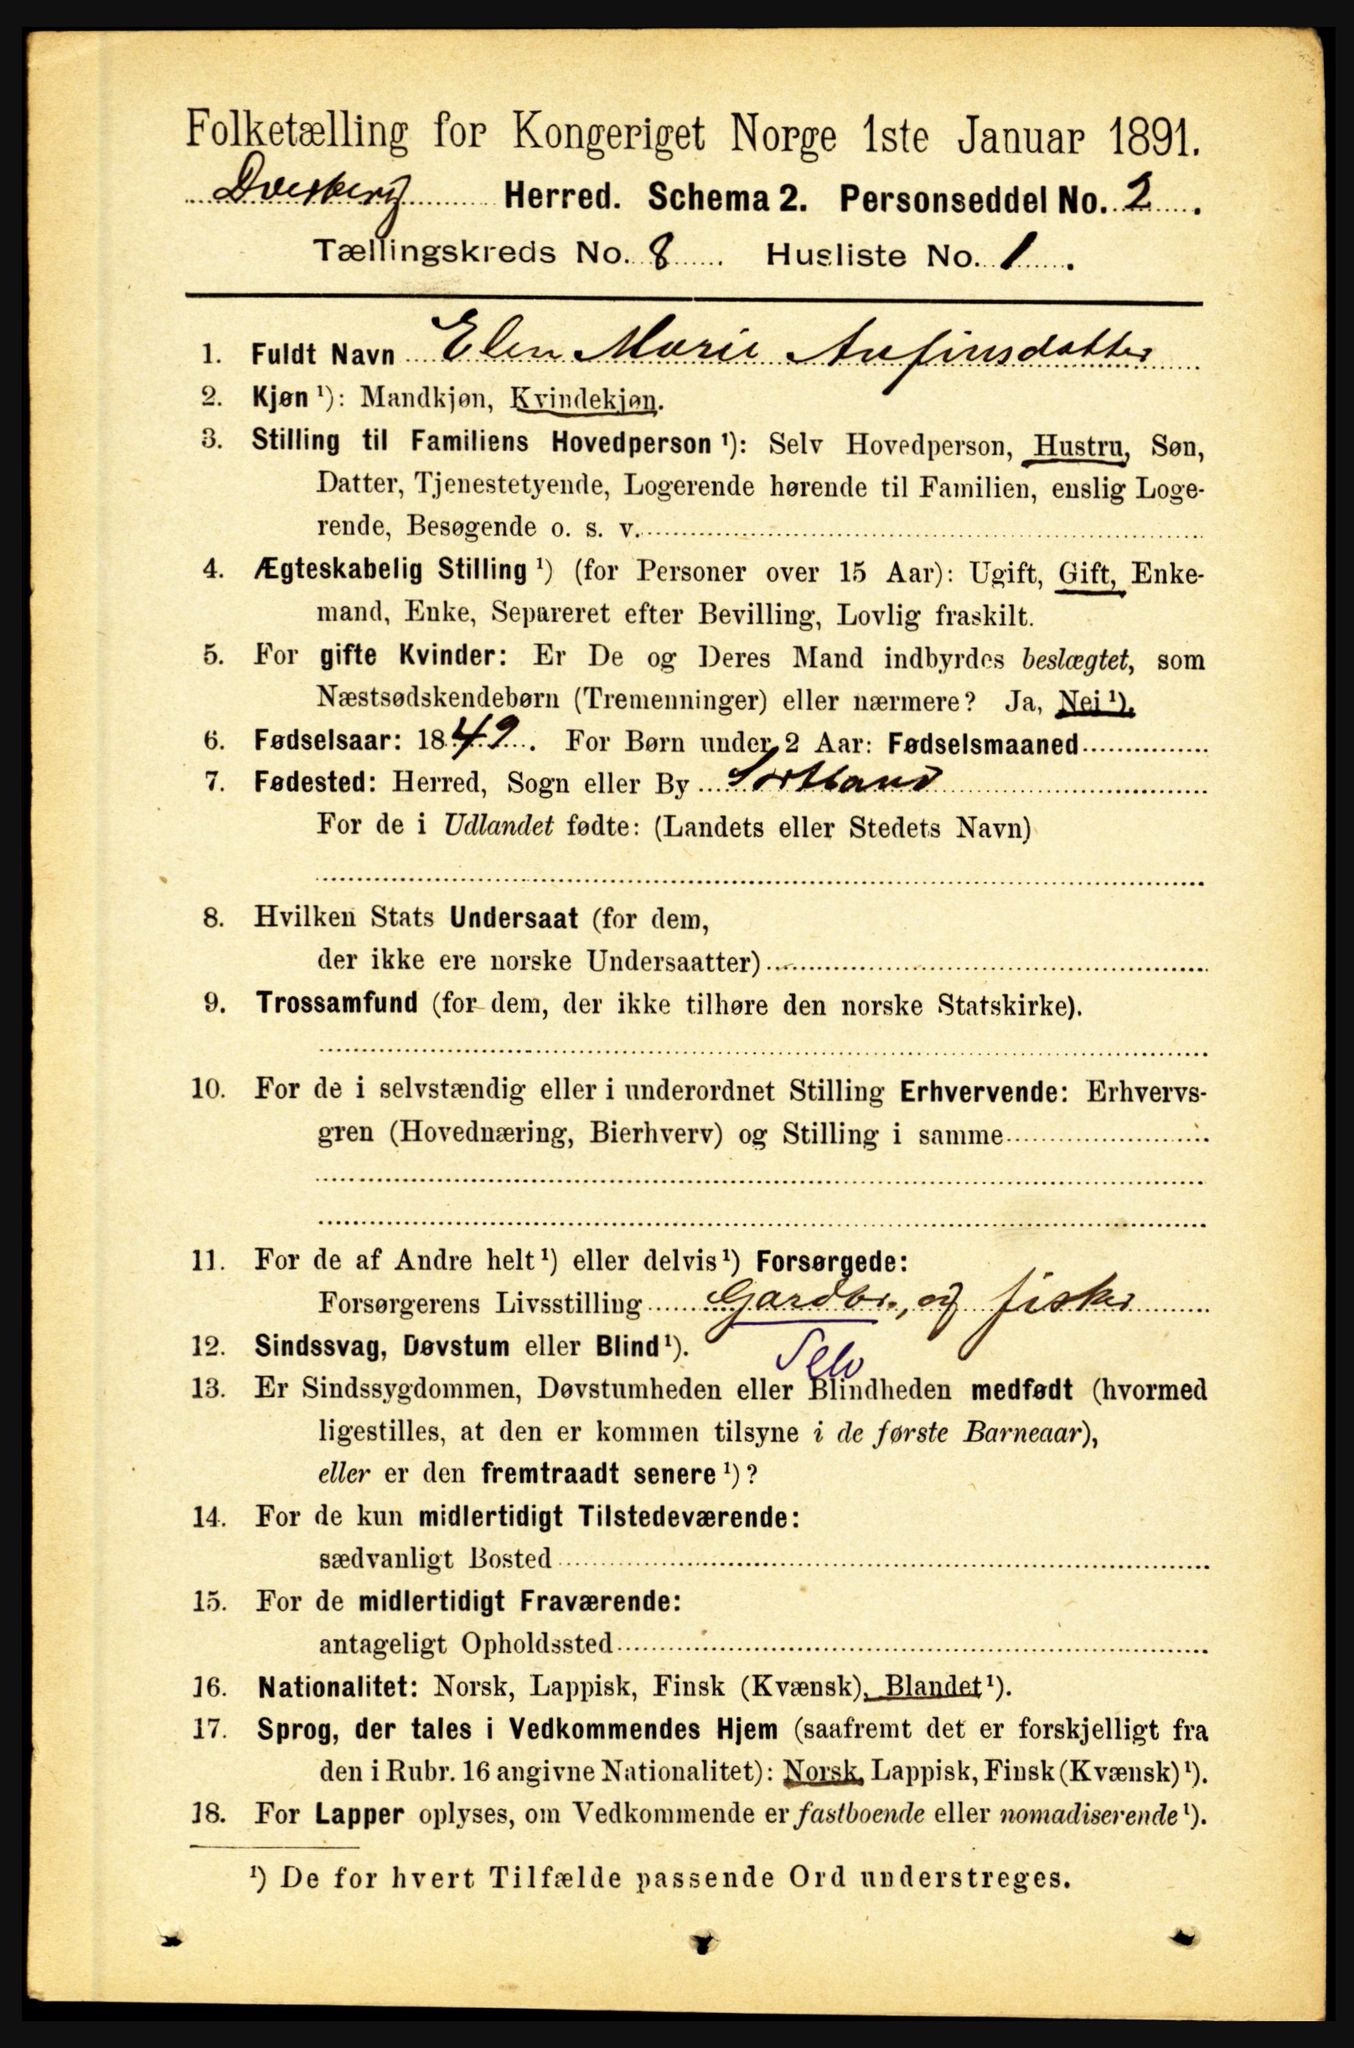 Folketælling for Kongeriget Norge 1ste Januar 1891.
Dverberg Herred. Schema 2. Personseddel No. 2.
Tællingskreds No. 8. Husliste No. 1.
1. Fuldt Navn Elen Marie Anfinsdatter
2. Kjøn ¹): Mandkjøn, Kvindekjøn.
3. Stilling til Familiens Hovedperson ¹): Selv Hovedperson, Hustru, Søn,
Datter, Tjenestetyende, Logerende hørende til Familien, enslig Loge-
rende, Besøgende o. s. v.
4. Ægteskabelig Stilling ¹) (for Personer over 15 Aar): Ugift, Gift, Enke-
mand, Enke, Separeret efter Bevilling, Lovlig fraskilt.
5. For gifte Kvinder: Er De og Deres Mand indbyrdes beslægtet, som
Næstsødskendebørn (Tremenninger) eller nærmere? Ja, Nei ¹).
6. Fødselsaar: 1849. For Børn under 2 Aar: Fødselsmaaned
7. Fødested: Herred, Sogn eller By Sortland
For de i Udlandet fødte: (Landets eller Stedets Navn)
8. Hvilken Stats Undersaat (for dem,
der ikke ere norske Undersaatter)
9. Trossamfund (for dem, der ikke tilhøre den norske Statskirke).
10. For de i selvstændig eller i underordnet Stilling Erhvervende: Erhvervs-
gren (Hovednæring, Bierhverv) og Stilling i samme
11. For de af Andre helt ¹) eller delvis ¹) Forsørgede:
Forsørgerens Livsstilling Gardbr., og fisker
12. Sindssvag, Døvstum eller Blind ¹).
Selv
13. Er Sindssygdommen, Døvstumheden eller Blindheden medfødt (hvormed
ligestilles, at den er kommen tilsyne i de første Barneaar),
eller er den fremtraadt senere ¹)?
14. For de kun midlertidigt Tilstedeværende:
sædvanligt Bosted
15. For de midlertidigt Fraværende:
antageligt Opholdssted
16. Nationalitet: Norsk, Lappisk, Finsk (Kvænsk), Blandet ¹).
17. Sprog, der tales i Vedkommendes Hjem (saafremt det er forskjelligt fra
den i Rubr. 16 angivne Nationalitet): Norsk, Lappisk, Finsk (Kvænsk) ¹).
18. For Lapper oplyses, om Vedkommende er fastboende eller nomadiserende ¹).
¹) De for hvert Tilfælde passende Ord understreges.